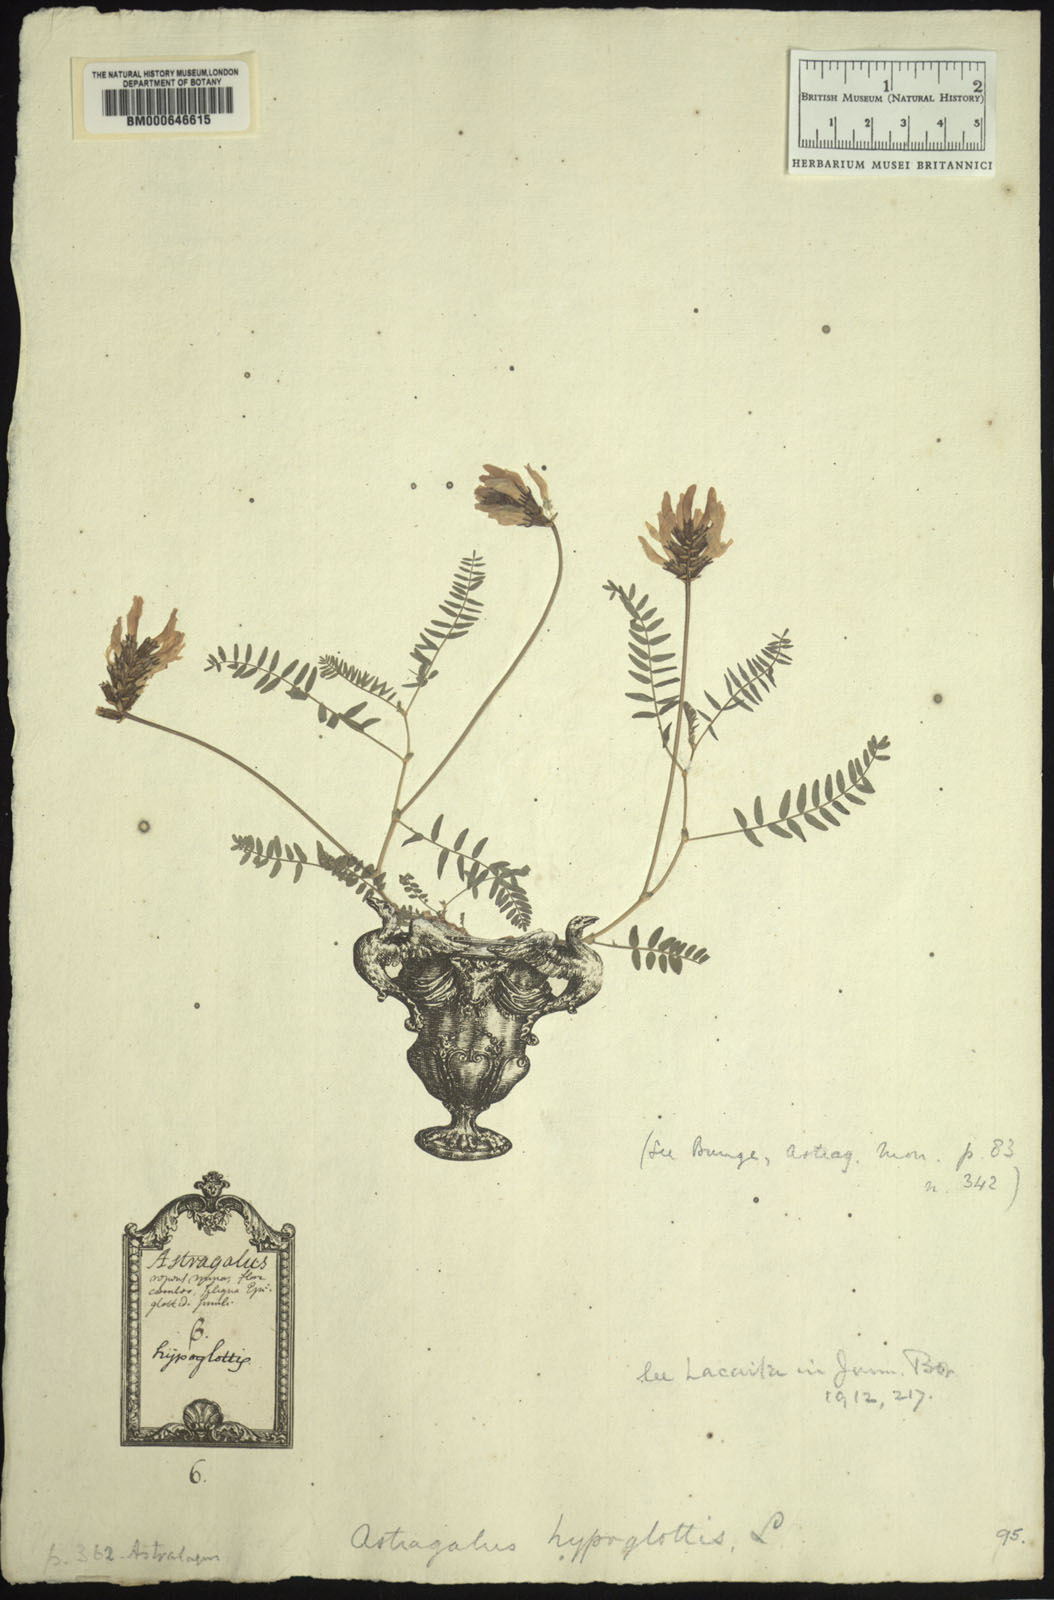 THE NATURAL HISTORY MUSEUM, LONDON
DEPARTMENT OF BOTANY
BM000646615
1 2
BRITISH MUSEUM (NATURAL HISTORY)
1 2 3 4 5
HERBARIUM MUSEI BRITANNICI
(See Bunge, Astrag. Mon. p. 83
n. 342)
Astragalus
flor
Siliqua Epi-
glottidi simili.
β.
hypoglottis.
6.
See Lacaita in Journ. Bot
1912, 217.
Astragalus hypoglottis, L
95.
p. 362. Astralagus